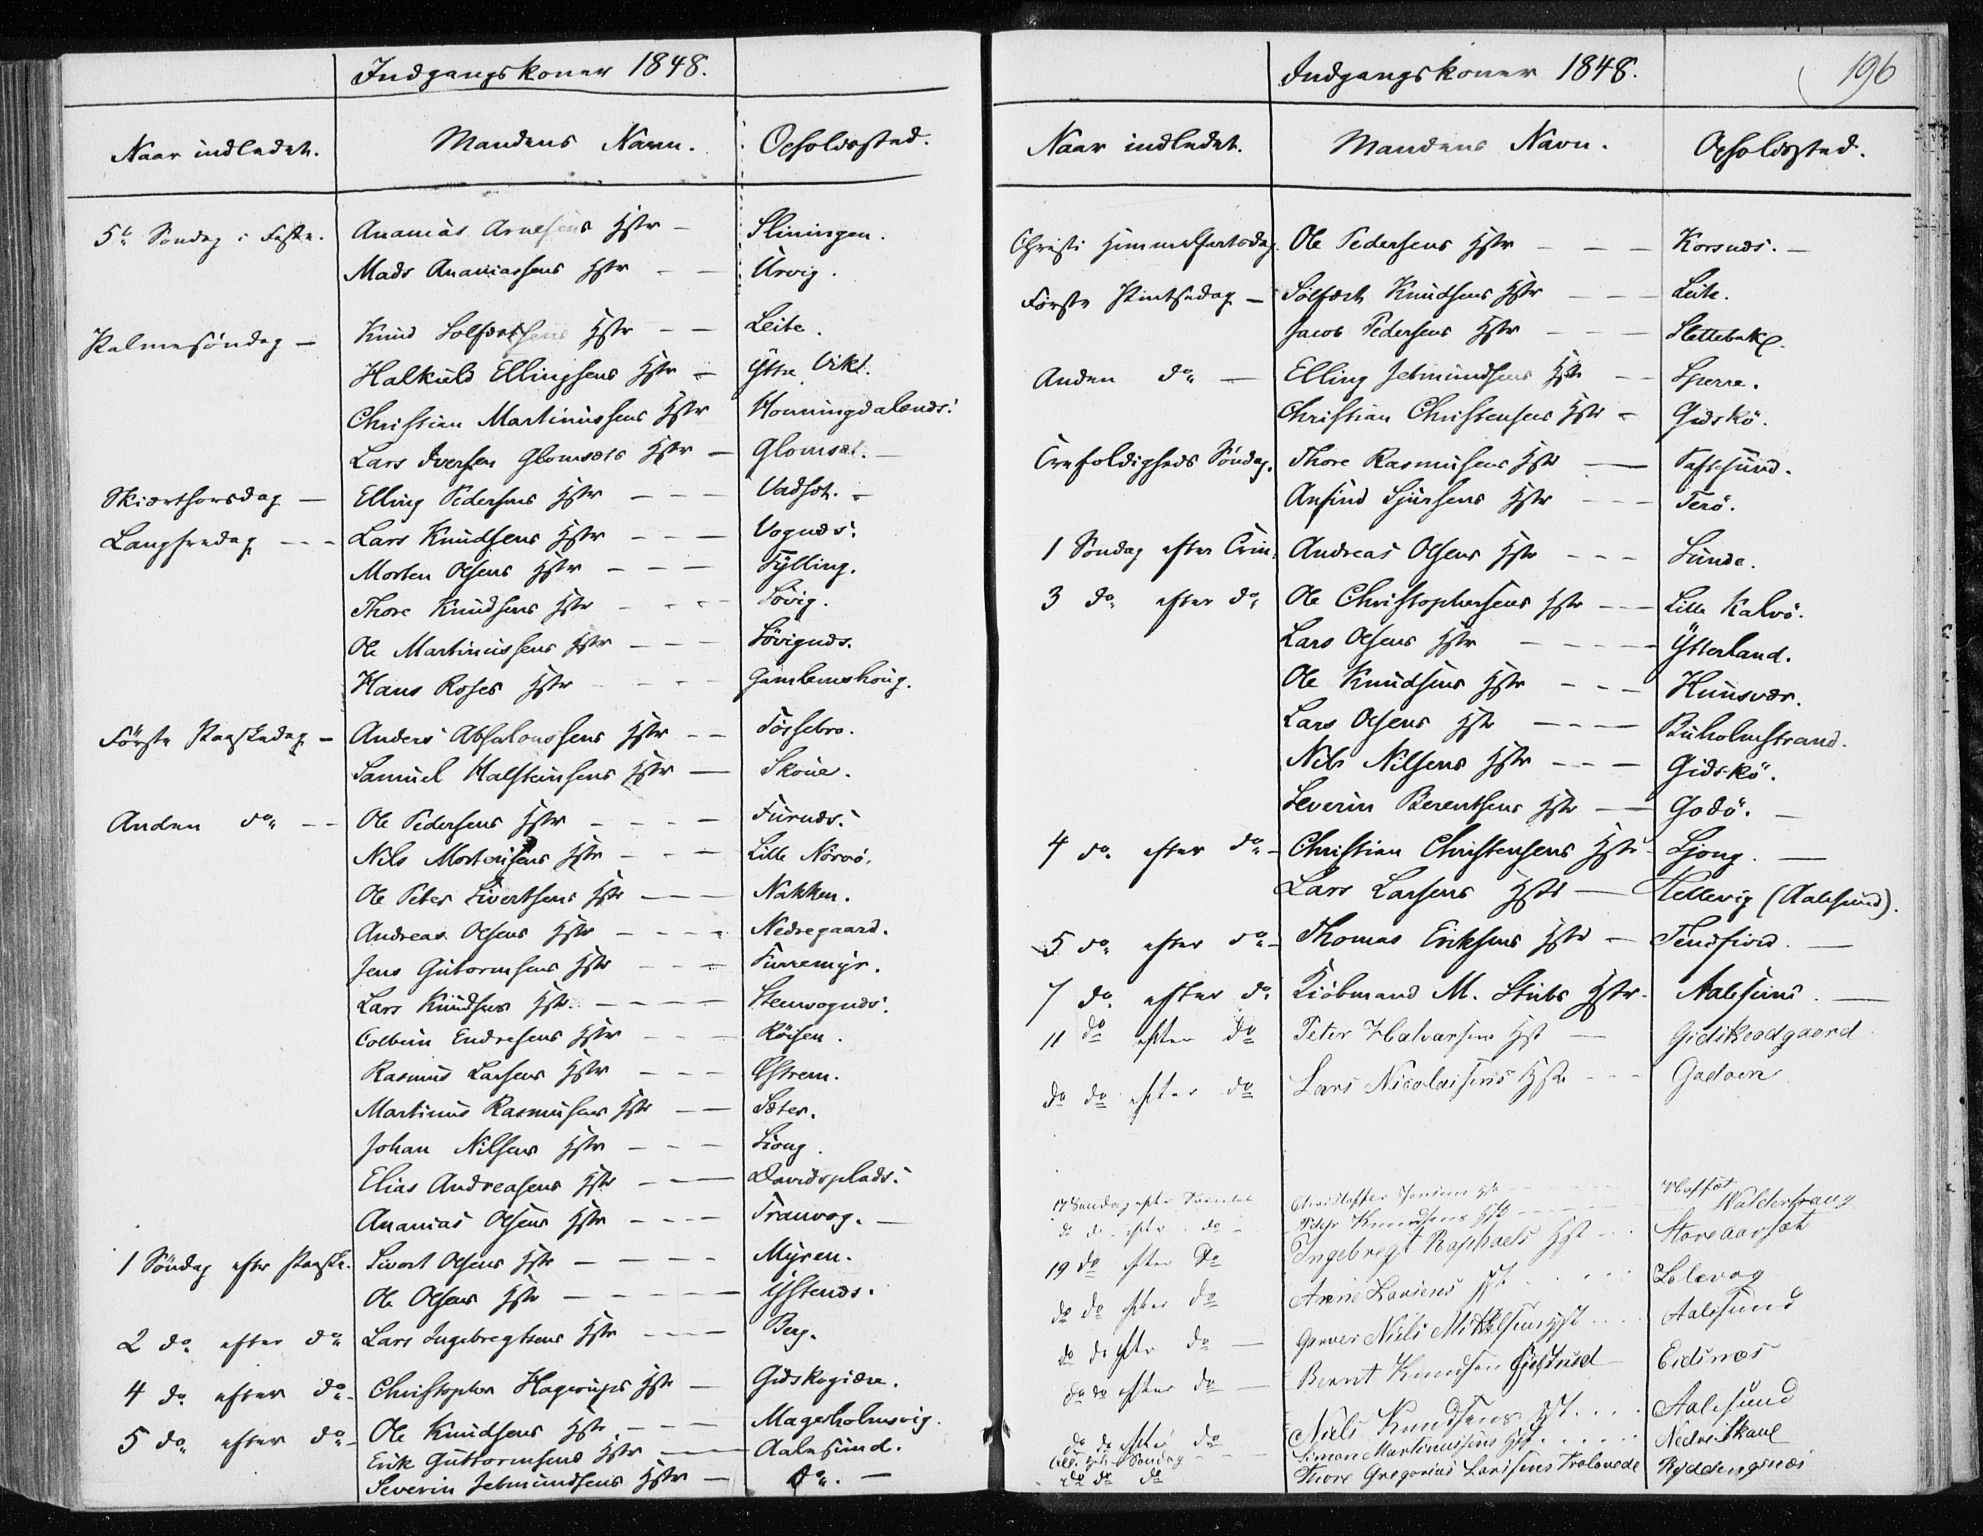 Indgangskoner 1848.
Naar indledet. Mandens Navn. Opholdssted.
5te Søndag i Faste. Ananias Arnesens Hstr — Slinningen.
Mads Ananiassens Hstr — — Urvig.
Palmesøndag — Knud Solfæstsens Hstr — — Leite.
Halkield Ellingsens Hstr — Ytre Vikt.
Christian Martinussens Hstr Honningdalsnæs.
Lars Iversen Glomsæts Hstr — Glomsæt. —
Skiærthorsdag — Elling Pedersens Hstr — — — Vadset. —
Langfredag — — — Lars Knudsens Hstr — — — Vognæs.
Morten Olsens Hstr — — — Fylling.
Thore Knudsens Hstr — — — Søvig.
Ole Martinussens Hstr — — — Søvignæs.
Hans Roses Hstr — — — Gamlemshoug.
Første Paaskedag — Anders Absalonssens Hstr — — Fossebro.
Samuel Halsteinsens Hstr — Skoue.
Anden do — — Ole Pedersens Hstr — — — — Furnæs.
Nils Mortensens Hstr — — — Lille Nørvø.
Ole Peter Sivertsens Hstr — — — Nakken.
Andreas Olsens Hstr — — — — Nedregaard.
Jens Gutormsens Hstr — — — Furremyr.
Lars Knudsens Hstr. — — — — Stensognæs.
Colbein Endresens Hstr — — — Røisen.
Rasmus Larsens Hstr — — — Østrem.
Martinus Rasmusens Hstr — — Sæter.
Johan Nilsens Hstr — — — Liong.
Elias Andreasens Hstr — — — Davidsplads.
Ananias Olsens Hstr — — — Tranvog. —
1 Søndag efter Paaske. Sivert Olsens Hstr — — — — Myren.
Ole Olsens Hstr — — — — — Ystenæs.
2 do efter do Lars Ingebregtsens Hstr — — — Berg.
4 do efter do — Christopher Hagerups Hstr — Gidskegiære.
5 do efter do — Ole Knudsens Hstr — — Magerholmsvig.
Erik Guttormsens Hstr — — — Aalesund.
Severin Jetmundsens Hstr — do. —
Indgangskoner 1848. 196
Naar indledet. Mandens Navn. Opholdssted.
Christi Himmelfartsdag. Ole Pedersens Hstr — — — Korsnæs. —
Første Pintsedag — Solfæst Knudsens Hstr — — — Leite.
Jacob Pedersens Hstr — — — — Slettebak.
Anden do — Elling Jetmundsens Hstr — — Sperre.
Christian Christensens Hstr — Gidskø.
Trefoldigheds Søndag. Thore Rasmusens Hstr — — Taftesund.
Anfind Sjursens Hstr — — — Terø.
1 Søndag efter Trin. Andreas Olsens Hstr — — — Sunde.
3 do efter do Ole Christophersens Hstr — — — Lille Kalvø.
Lars Olsens Hstr — — — — — Ytterland.
Ole Knudsens Hstr — — — Hunsvær.
Lars Olsens Hstr — — — — Buholmstrand.
Nils Nilsens Hstr — — — Gidskø.
Severin Berentsens Hstr — — Godø. —
4 do efter do — Christian Christensens Hstr — Ljong. —
Lars Larsens Hstr — Hellevig (Aalesund).
5 do efter do — Thomas Eriksens Hstr — Tennfiord. —
7 do efter do Kiøbmand M. Stubs Hstr. Aalesund. —
11 do efter do Peter Halvarsens Hst — Gidskeødgaard
do do efter do Lars Nicolaisens Hstr — — — Godøen
17 Søndag efter Christoffer Hst
do do efter do — Peder Knudsens Hst Walderhaug
19 do efter do Ingebregt Raphaels Hst . . . Store aarsæt
do do efter do Hst . . . . . Lolevog
do do efter do — Niels Mikkelsens Hst . . . . Aalesund
do do efter do — Bernt Knudsen Eidsnæs
do do efter do Niels Knudsens Hst . . . . Aalesund
Søndag — — Simon Martinussens Hst . . . . . . Nedreskoue
do do do Thore Gregorius Larsens